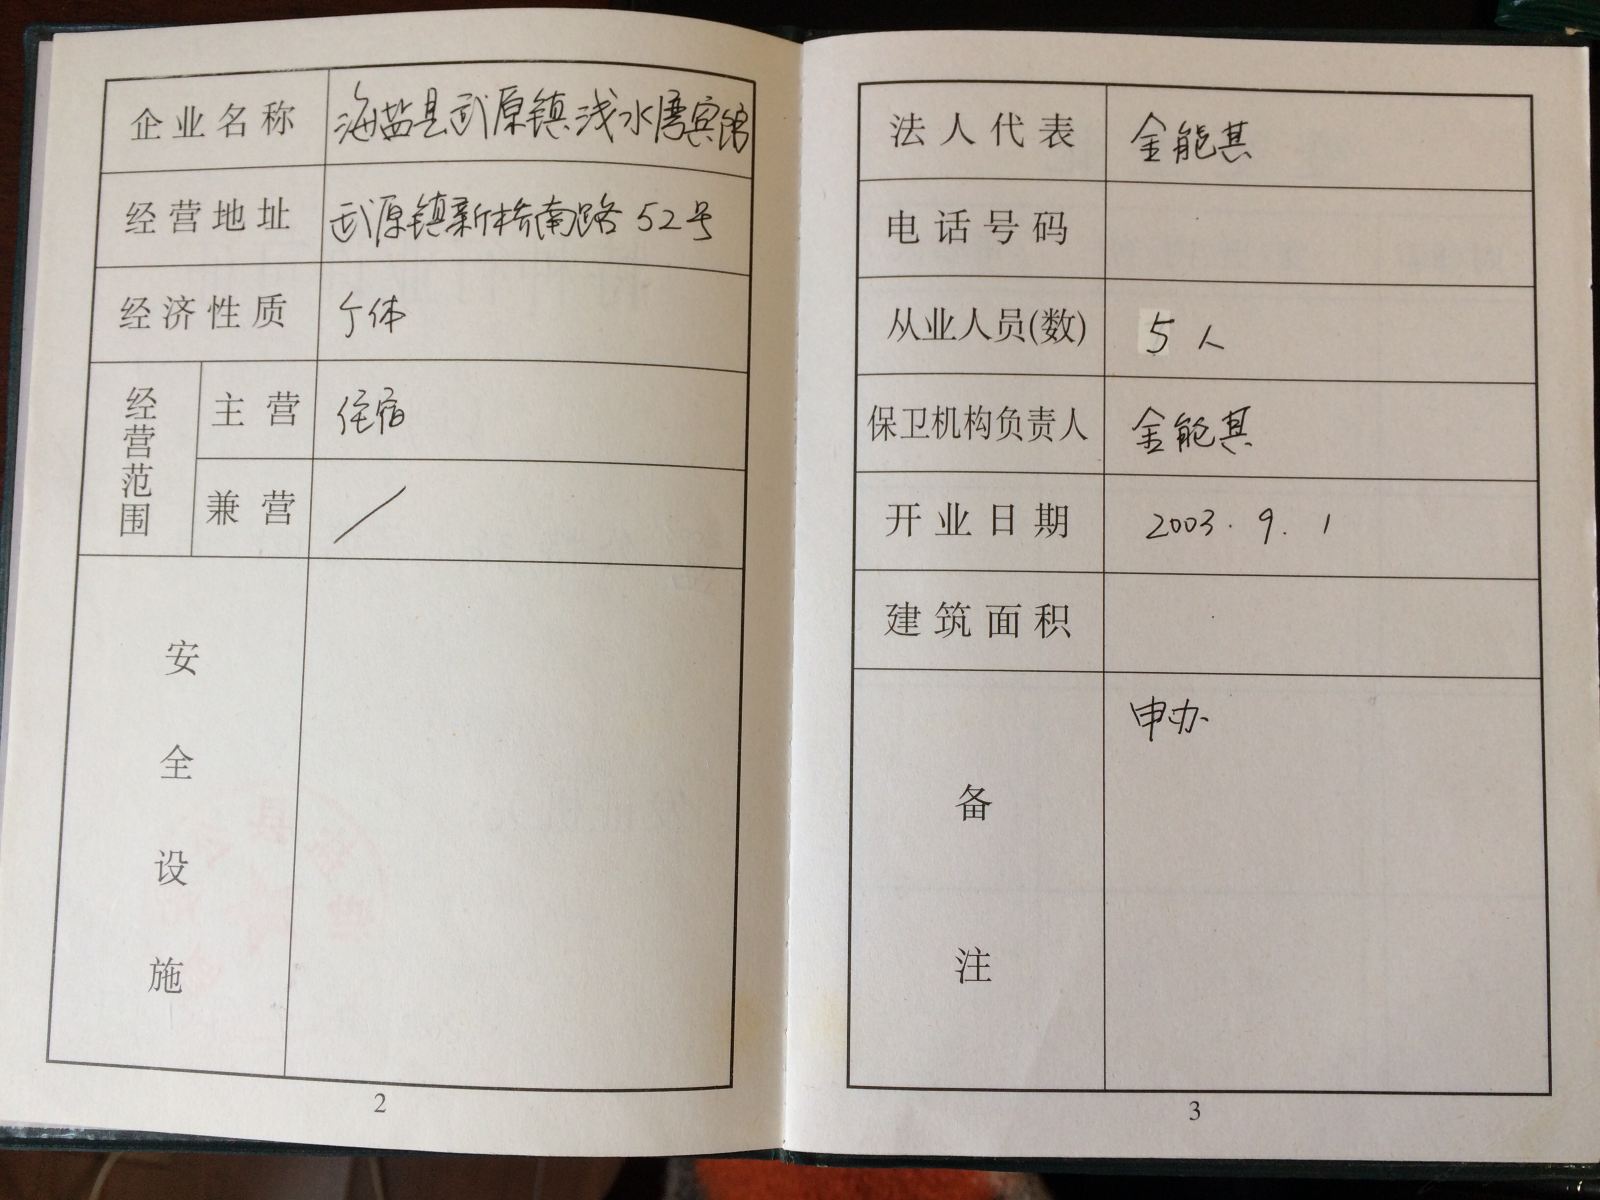 企业名称 海盐县武原镇浅水湾宾馆
经营地址 武原镇新桥南路52号
经济性质 个体
经营范围
主营 住宿
兼营 /
安全设施
2
法人代表 金能其
电话号码
从业人员(数) 5人
保卫机构负责人 金能其
开业日期 2003.9.1
建筑面积
备注 申办
3